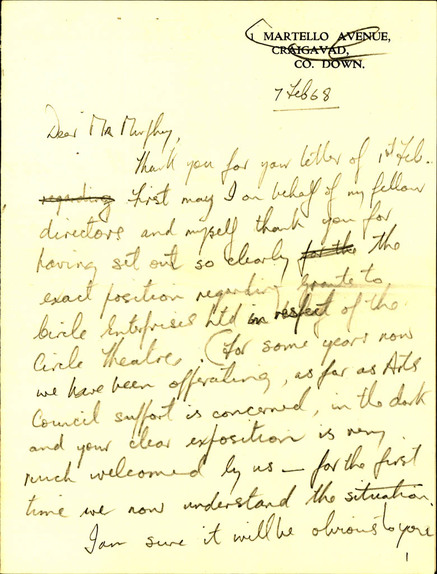 1 MARTELLO AVENUE,
CRAIGAVAD,
CO. DOWN.
7 Feb 68
Dear Mr Murphy,
Thank you for your letter of 1st Feb.
regarding First may I on behalf of my fellow
directors and myself thank you for
having set out so clearly for the the
exact position regarding grants to
Circle Enterprises Ltd in respect of the
Circle Theatre. (For some years now
we have been operating, as far as Arts
Council support is concerned, in the dark
and your clear exposition is very
much welcomed by us — for the first
time we now understand the situation.
I am sure it will be obvious to you
1